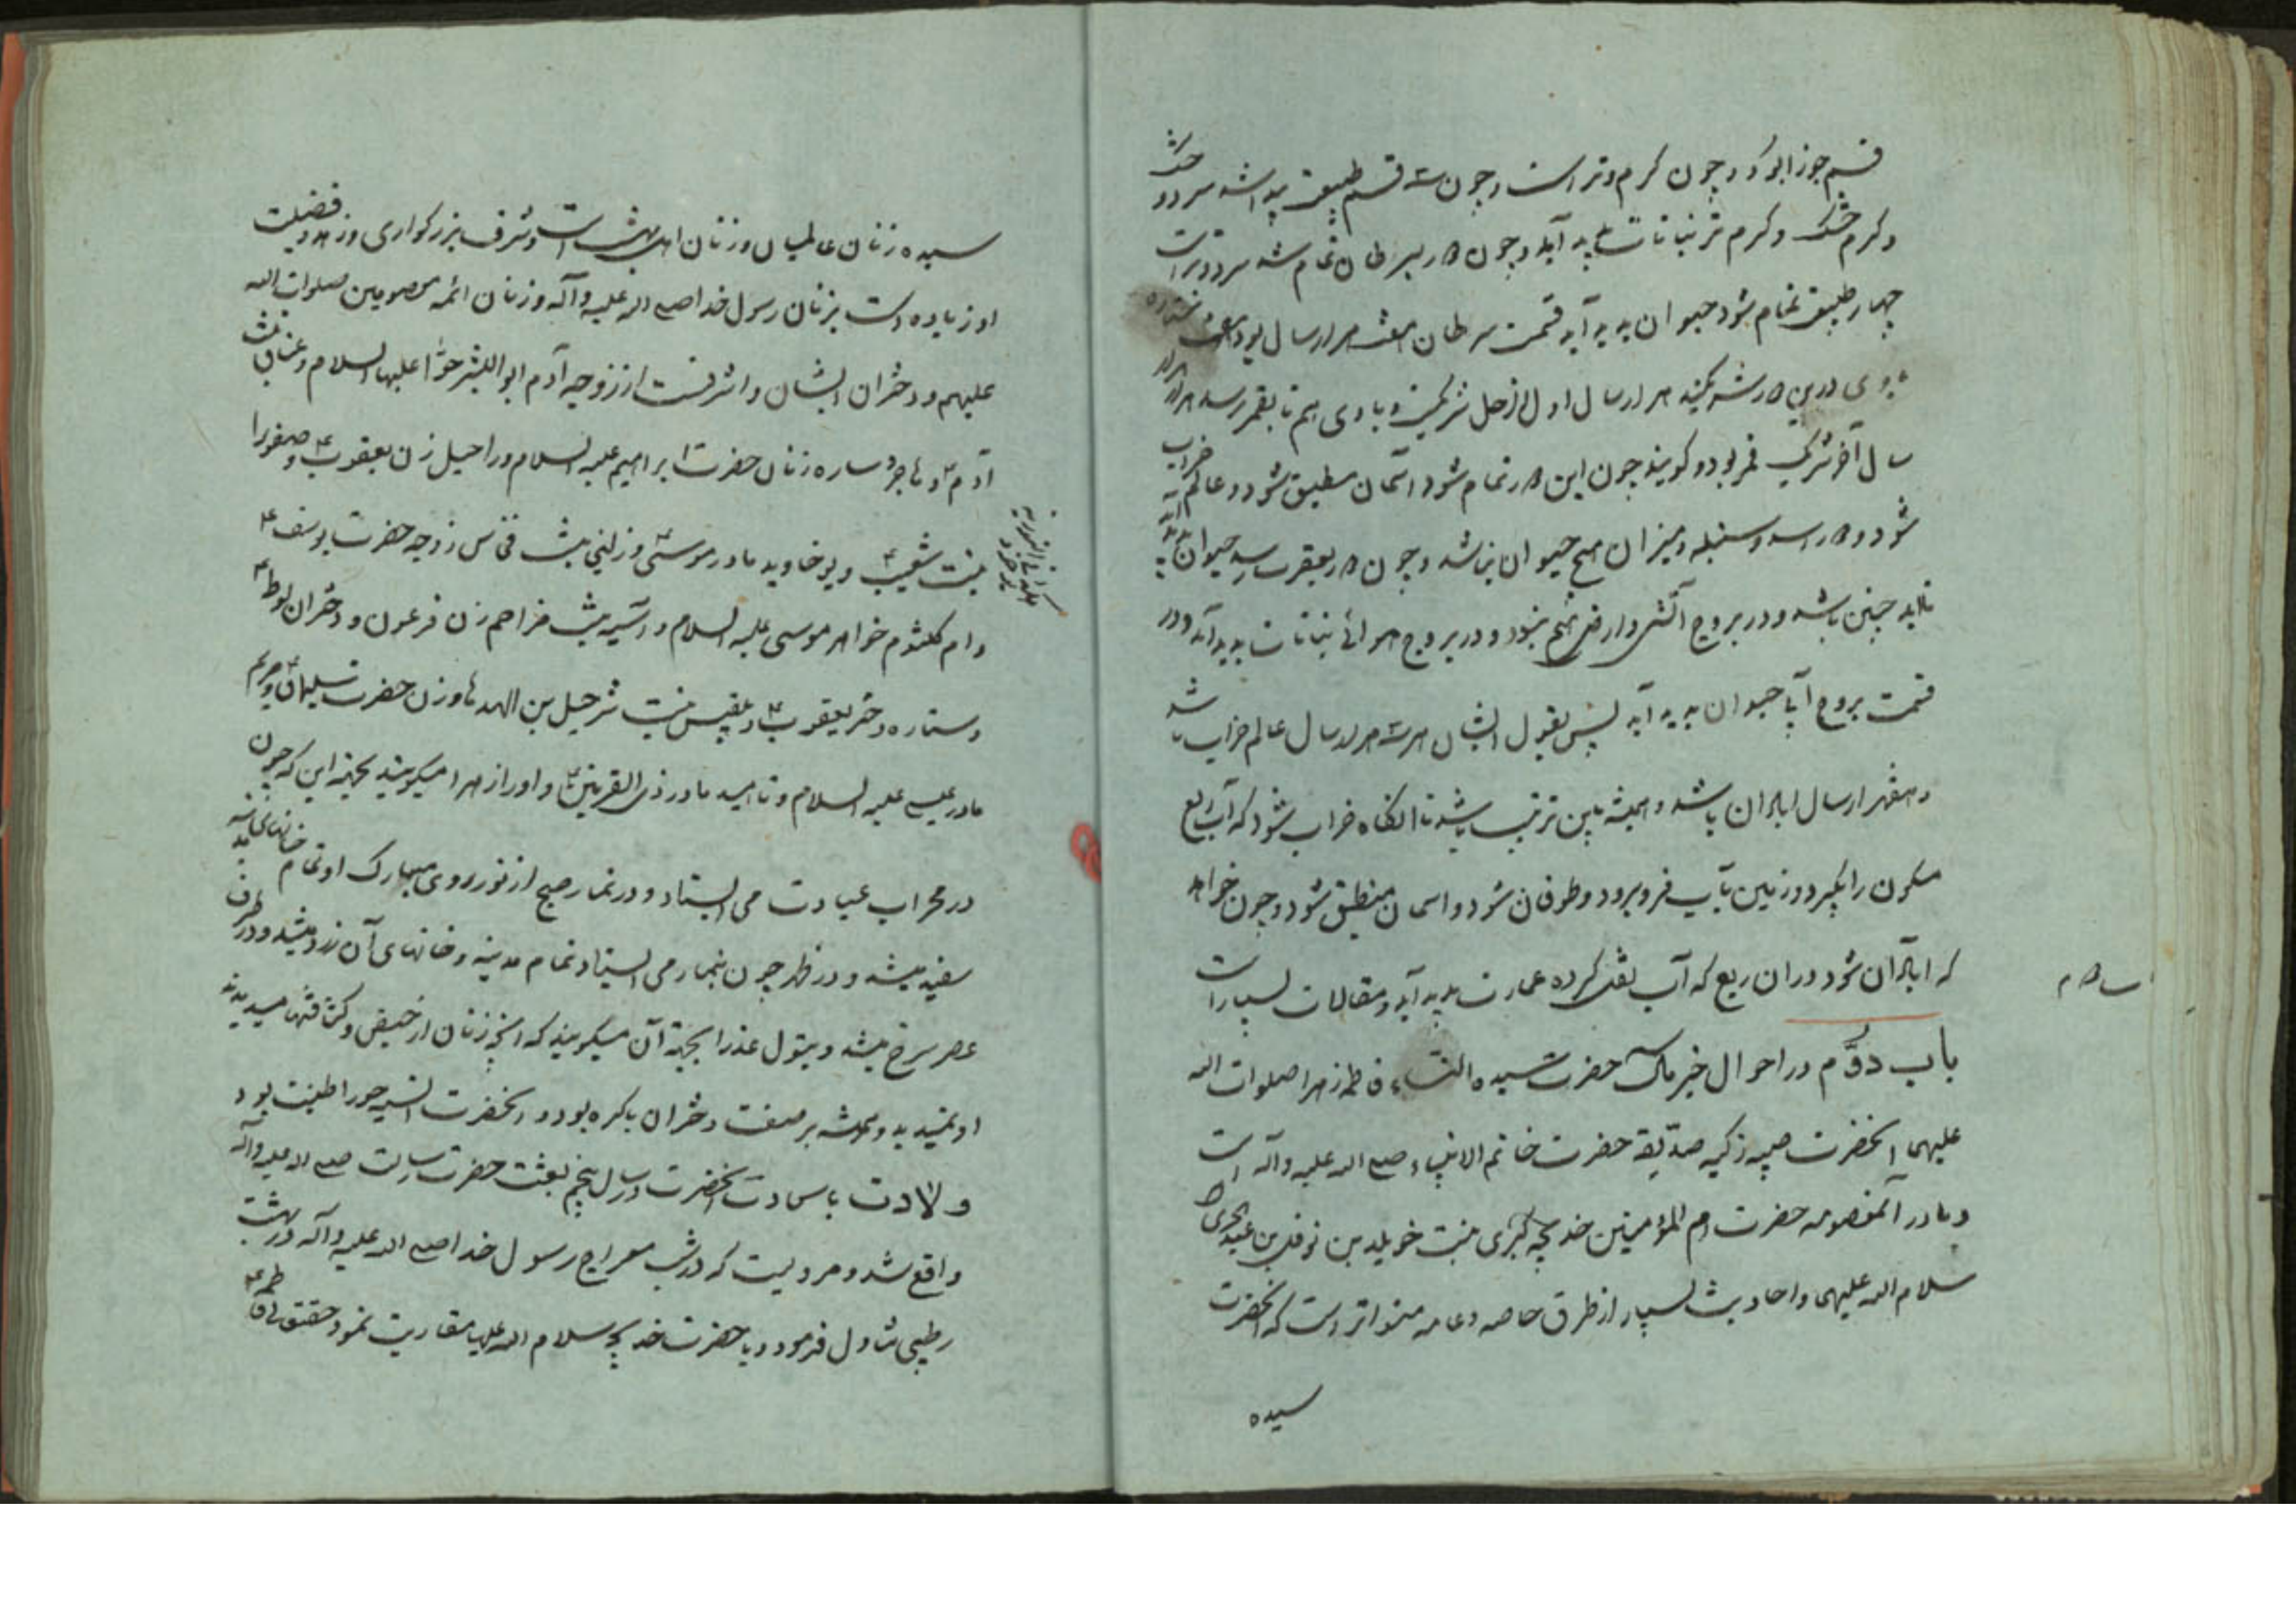 قسم جوزا بود و چون گرم و تر است و چون سه قسم طبیعی پیدا شد سرد و خشک
و گرم خشک و گرم تر نباتات پدید آید و چون دور بسرطان تمام شد سرد و تر است
چهار طبیعی تمام شود حیوان پدید آید قسمت سرطان هفت هزار سال بود
سال آخر شریک قمر بود و گویند چون این دور تمام شود آسمان منطبق شود و عالم خراب
شود و دور اسد و سنبله و میزان هیچ حیوان نباشد و چون دور بعقرب رسد حیوان
باشد و در بروج آتشی و ارضی هیچ نبود و در بروج هوائی نباتات پدید آید و در
قسمت بروج آبی حیوان پدید آید پس بقول ایشان هر سه هزار سال عالم خراب باشد
و هفتهزار سال آبادان باشد و همیشه باین ترتیب باشد تا آنگاه خراب شود که آب ربع
مسکون را بگیرد و زمین بآب فرو برود و طوفان شود و آسمان منطبق شود و چون خواهد
که آبادان شود در ان ربع که آب نقل کرده عمارت پدید آید و مقالات بسیار است
باب دوّم در احوال خیر مآل حضرت سیده النساء فاطمه زهرا صلوات الله
علیهما آنحضرت صبیه زکیه صدّیقه حضرت خاتم الانبیاء صلی الله علیه وآله است
و مادر آنمعصومه حضرت ام المؤمنین خدیجه کبری بنت خویلد بن نوفل بن
سلام الله علیهما و احادیث بسیار از طرق خاصه و عامه متواتر است که آنحضرت
سیده
سیده زنان عالمیان و زنان اهل بهشت است و شرف بزرگواری و زهد و فضیلت
او زیاده است بزنان رسول خدا صلی الله علیه وآله و زنان ائمه معصومین صلوات الله
علیهم و دختران ایشان و اشرفست از زوجه آدم ابو البشر حوّا علیها السلام و عناق بنت
آدم ع و هاجر و ساره زنان حضرت ابراهیم علیه السلام و راحیل زن یعقوب ع و صفورا
بنت شعیب ع و یوخاوید مادر موسی ع و زلیخا بنت زوجه حضرت یوسف ع
و ام کلثوم خواهر موسی علیه السلام و آسیه بنت مزاحم زن فرعون و دختران لوط ع
و ستاره دختر یعقوب ع و بلقیس بنت شرحیل بن الهدهاد زن حضرت سلیمان ع و مریم
مادر عیسی علیه السلام و ناهید مادر ذی القرنین ع و او را زهرا میگویند بجهة این که چون
در محراب عبادت می ایستاد و در نماز صبح از نور روی مبارک او تمام خانهای مدینه
سفید میشد و در ظهر چون بنماز می ایستاد تمام مدینه و خانهای آن زرد میشد و در طرف
عصر سرخ میشد و بتول عذرا بجهة آن میگویند که آنچه زنان از حیض و کثافتها میدیدند
او نمیدید و همیشه بر صفت دختران باکره بود و آنحضرت انسیه حورا طینت بود
ولادت با سعادت آنحضرت در سال پنجم بعثت حضرت رسالت صلی الله علیه وآله
واقع شد و مرویست که در شب معراج رسول خدا صلی الله علیه وآله در بهشت
رطبی تناول فرمود و با حضرت خدیجه سلام الله علیها مقاربت نمود حقتعالی فاطمه ع